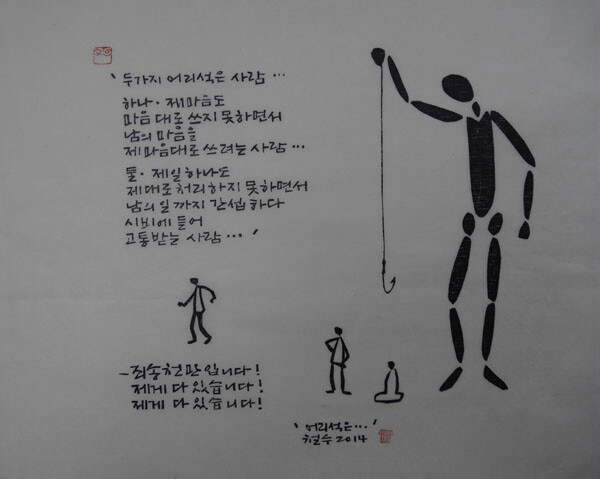 '두가지 어리석은 사람…
하나· 제마음도
마음대로 쓰지 못하면서
남의 마음을
제마음대로 쓰려는 사람…
둘· 제일 하나도
제대로 처리하지 못하면서
남의 일까지 간섭하다
시비에 들어
고통받는 사람…'
-죄송천만입니다!
제게 다 있습니다!
제게 다 있습니다!
'어리석은…'
철수 2014